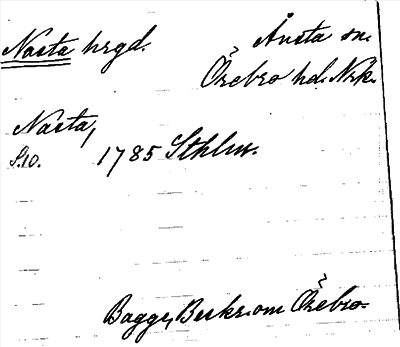 Nasta hrgd.
Ånsta sn.
Örebro hd. Nrk.
Nasta,
S. 10.
1785 Sthlm.
Bagge, Beskr. om Örebro.